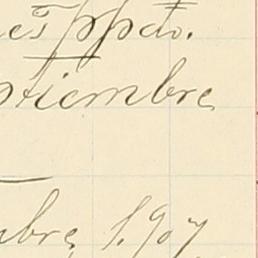 es ppdo.
ptiembre
mbre, 1.907